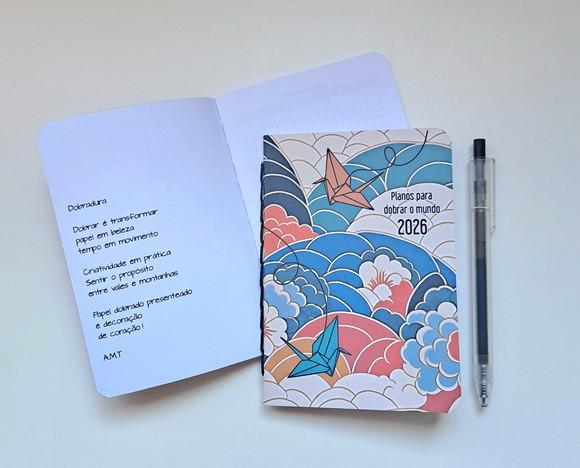 Dobradura
Dobrar é transformar
papel em beleza
tempo em movimento
Criatividade em prática
Sentir o propósito
entre vales e montanhas
Papel dobrado presenteado
é decoração
de coração!
A.M.T
Planos para
dobrar o mundo
2026